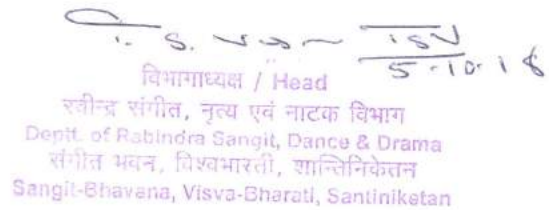 T. S.
5.10.18
विभागाध्यक्ष / Head
रवीन्द्र संगीत, नृत्य एवं नाटक विभाग
Deptt. of Rabindra Sangit, Dance & Drama
संगीत भवन, विश्वभारती, शान्तिनिकेतन
Sangit-Bhavana, Visva-Bharati, Santiniketan